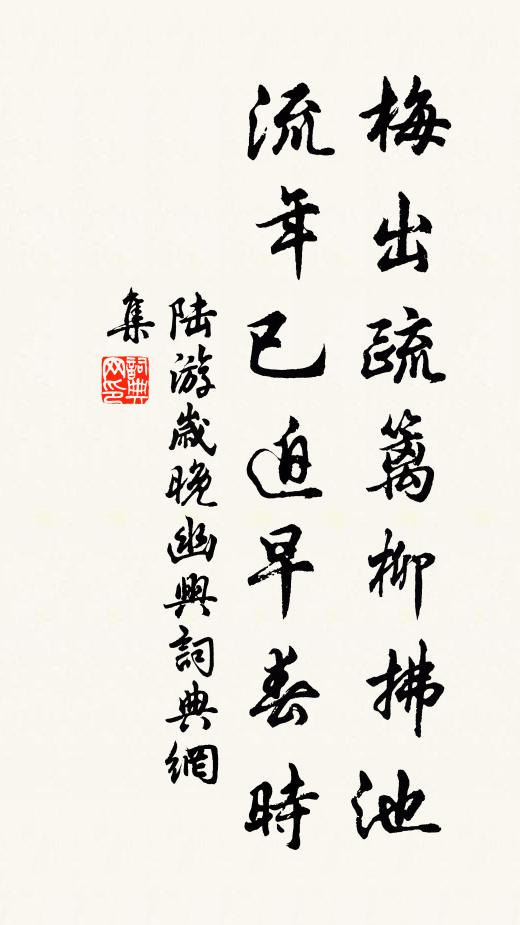 梅出疏篱柳拂池
流年已迫早春時
陸游歲晚幽興詞典網
集
詞典
网印